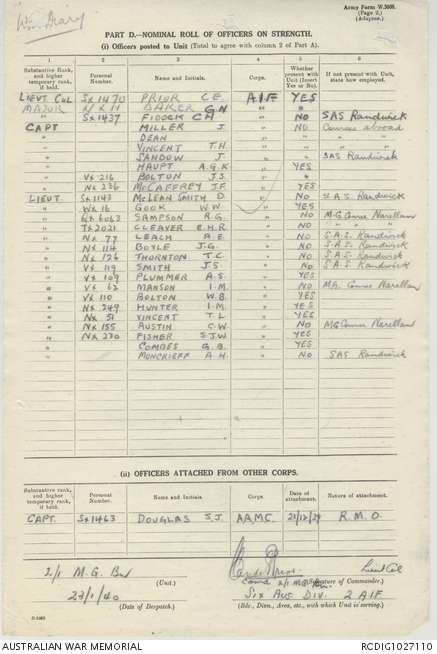 War Diary
Army Form W.3008.
(Page 2.)
PART D.—NOMINAL ROLL OF OFFICERS ON STRENGTH.
(i) Officers posted to Unit (Total to agree with column 2 of Part A).
1 2 3 4 5 6
Substantive Rank, and higher temporary rank, if held. Personal Number. Name and Initials. Corps. Whether present with Unit (Insert Yes or No). If not present with Unit, state how employed.
LIEUT COL SX1470 PRIOR C E A.I.F YES
MAJOR NX11 BAKER G N " "
" SX1437 FIDOCK C H " NO SAS Randwick
CAPT MILLER J. " NO Courses abroad
" DEAN "
" VINCENT T.H. "
" SANDOW J " SAS Randwick
" HAUPT A.G.K " YES
" VX216 BOLTON J.S. " "
" NX226 McCAFFREY J.F. " YES
LIEUT. SX1143 McLEAN SMITH D. " NO S.A.S. Randwick
" WX16 GOOK W.W. " YES
" QX6063 SAMPSON R.G. " NO M.G. Course Narellan
" TX2021 CLEAVER E.H.R. " NO " " "
" NX77 LEACH A.E. " NO S.A.S. Randwick
" NX114 BOYLE J.G. " NO S.A.S. Randwick
" NX126 THORNTON T.C. " NO S.A.S. Randwick
" VX119 SMITH J S " NO S.A.S. Randwick
" VX109 PLUMMER A.S. " YES
" VX62 MANSON I.M. " NO MG Course Narellan
" VX110 BOLTON W.B. " YES
" NX249 HUNTER I.M. " YES
" NX51 VINCENT T.L. " YES
" NX155 AUSTIN S.W. " NO MG Course Narellan
" NX230 FISHER S.J.W. " YES
" COMBES G.B. " YES
" MONCRIEFF A.H. " NO SAS Randwick
(ii) OFFICERS ATTACHED FROM OTHER CORPS.
Substantive rank, and higher temporary rank, if held. Personal Number. Name and Initials. Corps. Date of attachment. Nature of attachment.
CAPT. SX1463 DOUGLAS S.J. AAMC. 21/12/39 R.M.O.
2/1 M.G. Bn (Unit.)
Lieut Col
Comd 2/1 M.G. Bn (Signature of Commander.)
23/1/40 (Date of Despatch.)
Six Aus Div. 2 AIF
(Bde., Divn., Area, etc., with which Unit is serving.)
AUSTRALIAN WAR MEMORIAL
RCDIG1027110